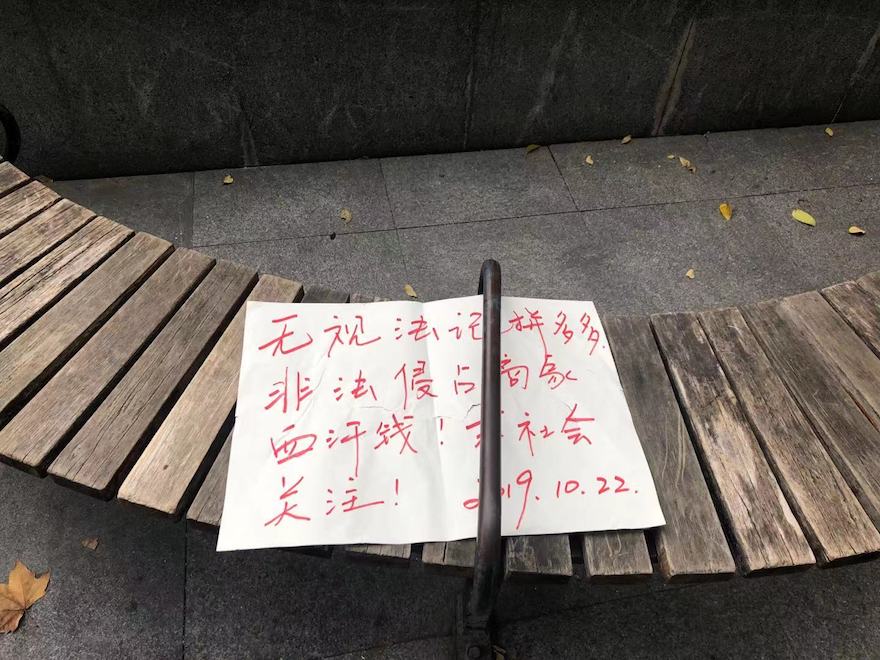 无视法记拼多多.
非法侵占商家
血汗钱！求社会
关注！ 2019.10.22.